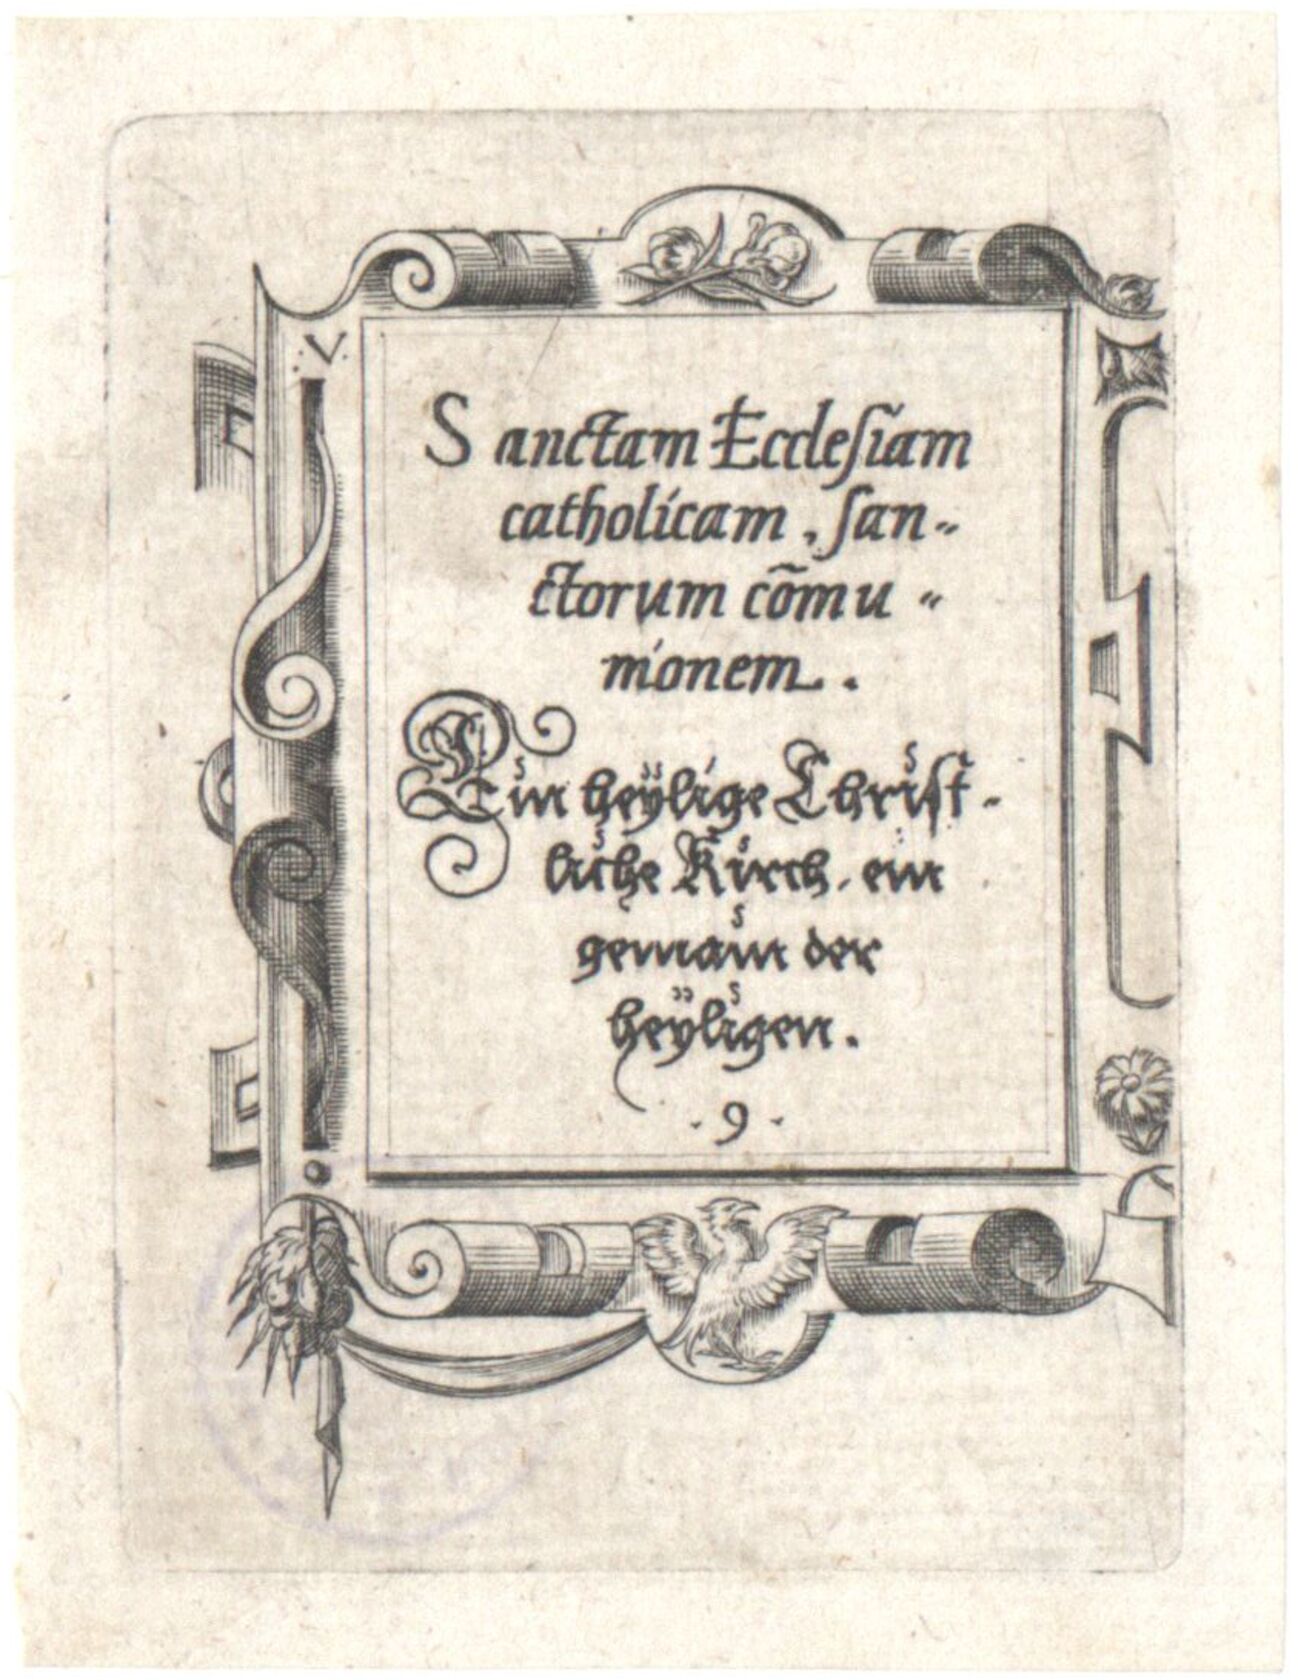 Sanctam Ecclesiam
catholicam, san-
ctorum cõmu-
nionem.
Ein heÿlige Christ-
liche Kirch, ein
gemain der
heÿligen.
. 9 .